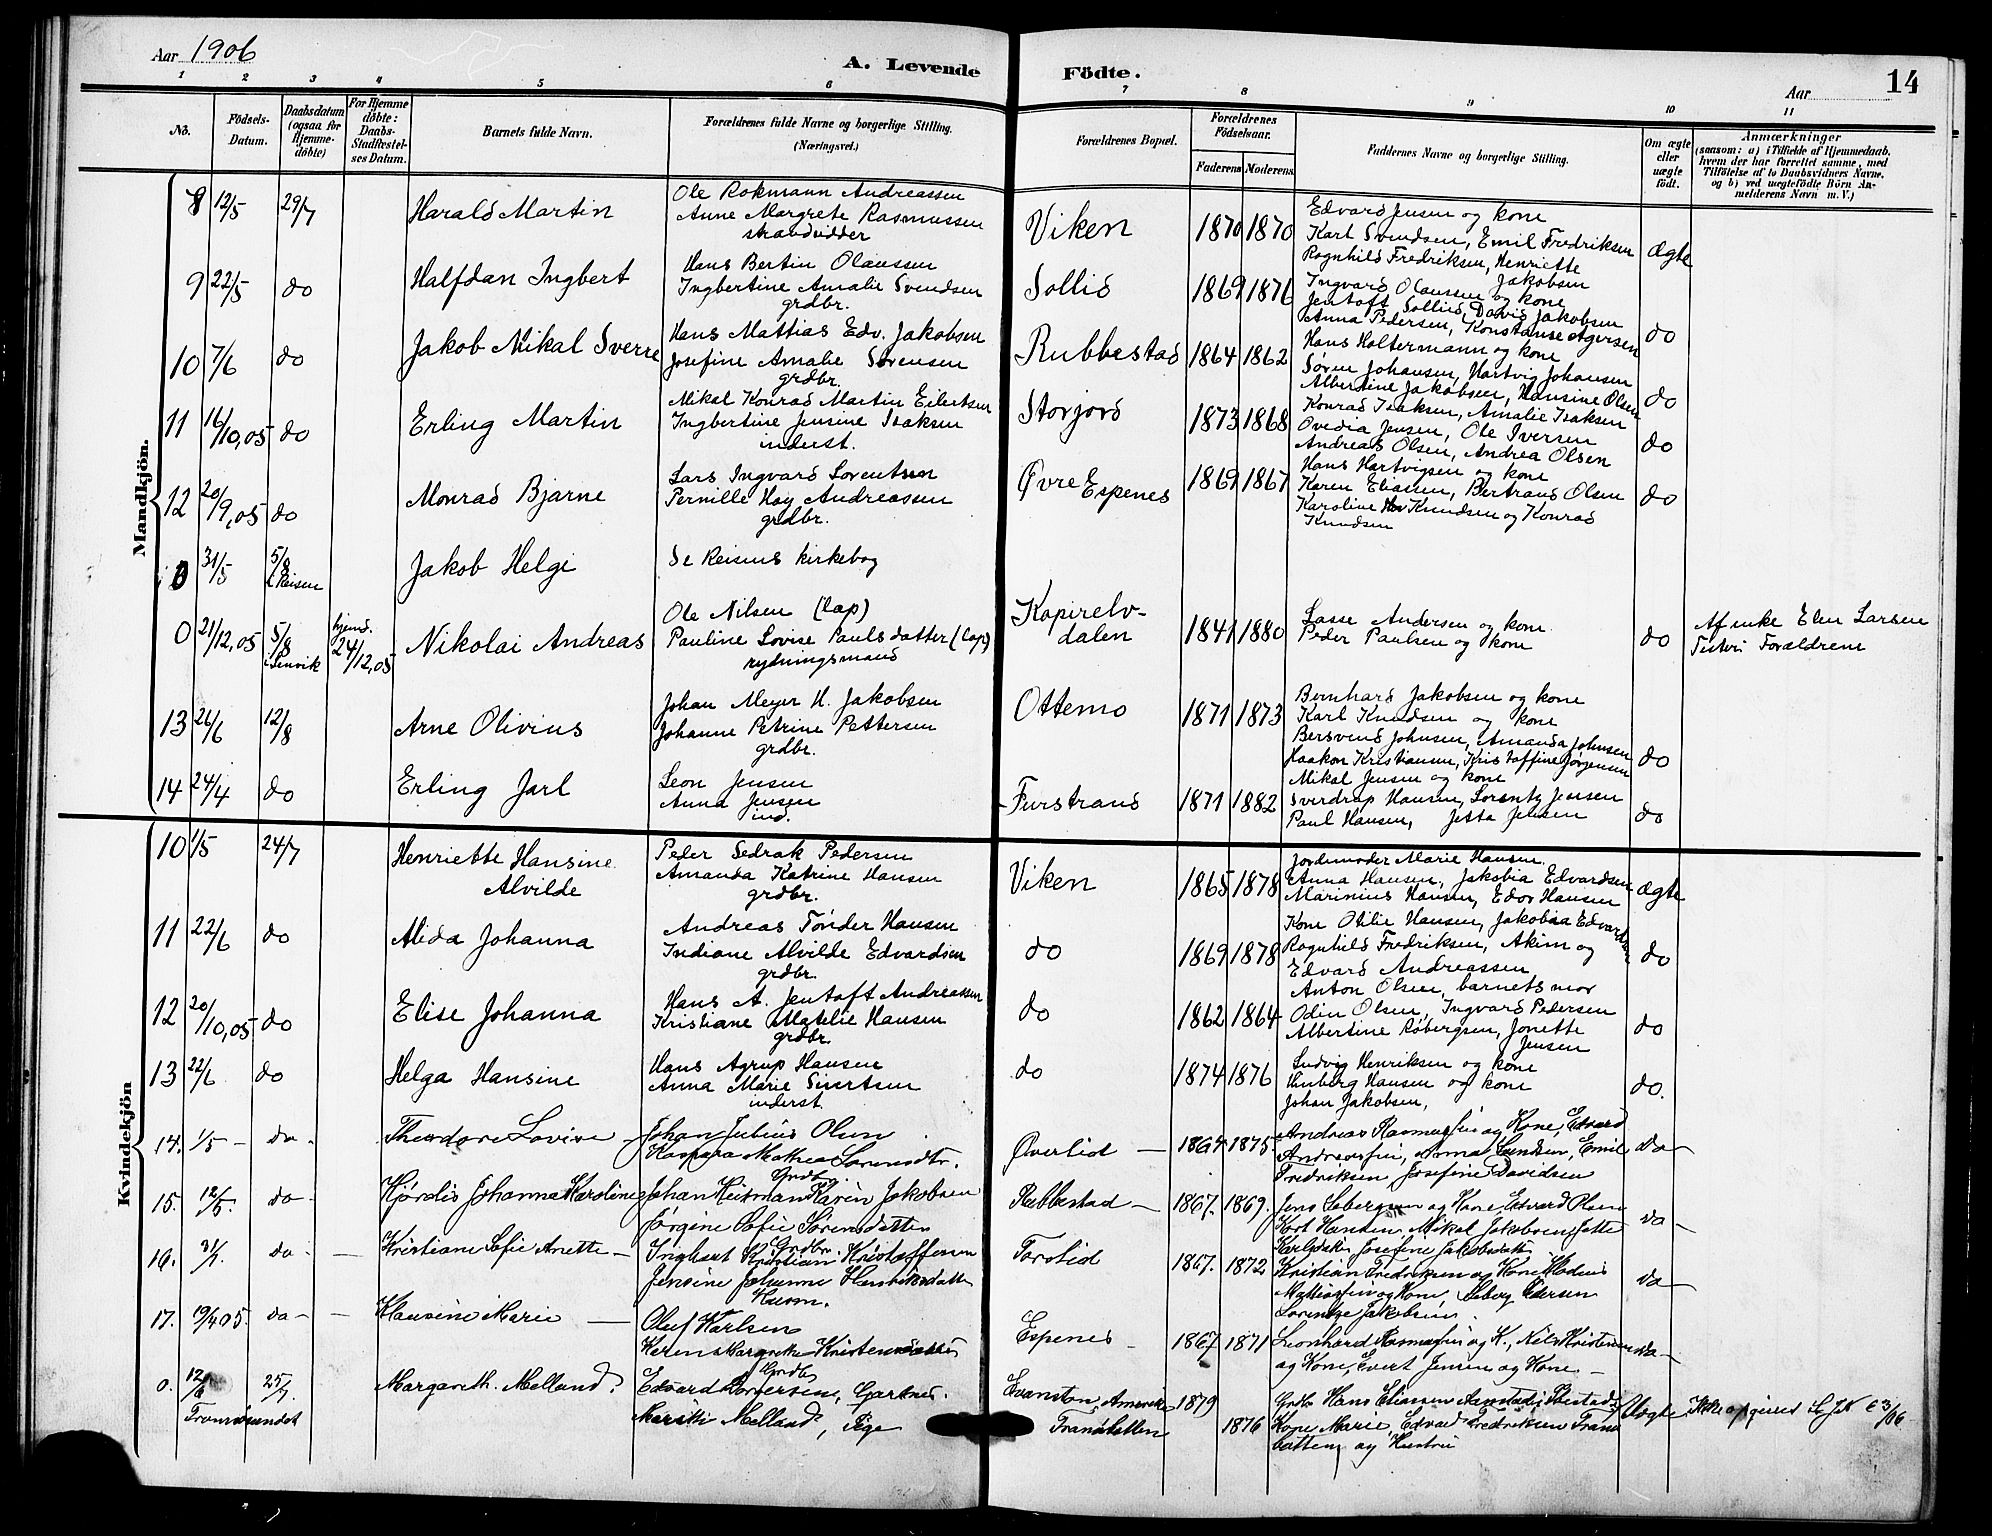 Aar 1906
A. Levende Födte.
Aar
14
1 2 3 4 5 6 7 8 9 10 11
No.
Födsels-Datum.
Daabsdatum (ogsaa for Hjemme-döbte)
For Hjemme döbte: Daabs-Stadfæstel-ses Datum.
Barnets fulde Navn.
Forældrenes fulde Navne og borgerlige Stilling.
(Næringsvei.)
Forældrenes Bopæl.
Forældrenes Födselsaar.
Faderens Moderens
Faddernes Navne og borgerlige Stilling.
Om ægte eller uægte födt.
Anmærkninger
(saasom: a) i Tilfælde af Hjemmedaab,
hvem der har forrettet samme, med
Tilföielse af to Daabsvidners Navne,
og b) ved uegtefödte Börn An-
melderens Navn m. V.)
Mandkjön.
8 12/5 29/7 Harald Martin
Ole Rokmann Andreassen
Anne Margrete Rasmussen
strandsidder
Viken 1870 1870
Edvard Jensen og kone
Karl Svendsen, Emil Fredriksen
Ragnhild Fredriksen, Henriette
Jakobsen
Ægte
9 22/5 do Halfdan Ingbert
Hans Bertin Olaussen
Ingbertine Amalie Svendsen
grdbr.
Sollid 1869 1876
Ingvard Olaussen og kone
Jentoft Sollid, David Jakobsen
Anna Pedersen, Konstanse Agersen
do
10 7/6 do Jakob Mikal Sverre
Hans Mattias Edv. Jakobsen
Josefine Amalie Sørensen
grdbr.
Rubbestad 1864 1862
Hans Holtermann og kone
Søren Johansen, Hartvig Johansen
Albertine Jakobsen, Hansine Olsen
do
11 16/10,05 do Erling Martin
Mikal Konrad Martin Eilertsen
Ingbertine Jensine Isaksen
inderst.
Storjord 1873 1868
Konrad Isaksen, Amalie Isaksen
Ovedia Jensen, Ole Iversen
Andreas Olsen, Andrea Olsen
do
12 20/9,05 do Monrad Bjarne
Lars Ingvard Lorentsen
Pernille Hay Andreassen
grdbr.
Øvre Espenes 1869 1867
Hans Hartvigsen og kone
Karen Eliassen, Bertrand Olsen
Karoline Knudsen og Konrad
Knudsen
do
0 31/5 5/8 i Reisen Jakob Helge
Se Reisens kirkebog
0 21/12,05 5/8 i Senvik hjemd. 24/12,05 Nikolai Andreas
Ole Nilsen (lap)
Pauline Lovise Paulsdatter (lap)
rydningsmand
Kapirelv-
dalen 1841 1880
Lasse Andersen og kone
Peder Paulsen og kone
do
Af enke Elen Larsen
Testes: Forældrene
13 26/6 12/8 Arne Olivius
Johan Meyer H. Jakobsen
Johanne Petrine Pettersen
grdbr.
Ottemo 1871 1873
Bernhard Jakobsen og kone
Karl Knudsen og kone
Bersvend Johnsen, Amanda Johnsen
Haakon Kristiansen, Kristoffine Jørgensen
do
14 24/4 do Erling Jarl
Leon Jensen
Anna Jensen
ind.
Furstrand 1871 1882
Mikal Jensen og kone
Sverdrup Hansen, Lorentz Jensen
Paul Hansen, Jetta Jensen
do
Kvindekjön
10 1/5 24/7 Henriette Hansine
Alvilde
Peder Sedrak Pedersen
Amanda Katrine Hansen
grdbr.
Viken 1865 1878
Jordemoder Marie Hansen.
Anna Hansen, Jakobia Edvardsen
Marinius Hansen, Edor Hansen
Ægte
11 22/6 do Alida Johanna
Andreas Tønder Hansen
Indiane Alvilde Edvardsen
grdbr.
do 1869 1878
Kone Otilie Hansen, Jakobia Edvardsen
Ragnhild Fredriksen, Akim og
Edvard Andreassen
do
12 20/10,05 do Elise Johanna
Hans A. Jentoft Andreassen
Kristiane Matelie Hansen
grdbr.
do 1862 1864
Anton Olsen, barnets mor
Odin Olsen, Ingvard Pedersen
Albertine Robergsen, Jonette
Jensen
do
13 22/6 do Helga Hansine
Hans Agrup Hansen
Anna Marie Sivertsen
inderst.
do 1874 1876
Ludvig Henriksen og kone
Hinberg Hansen og kone
Johan Jakobsen,
do.
14. 1/5 - do - Theodore Lovise
Johan Julius Olsen
Kaspara Mathea Sørensdtr.
Grdb.
Øverlid - 1864 1875.
Andreas Rasmussen og Kone, Edvard
Andreassen, Anna Svendsen, Emil
Fredriksen, Josefine Davidsen
do -
15. 12/5. do - Hjørdis Johanna Karoline
Johan Heitman Karen Jakobsen
Jørgine Sofie Sørensdatter
Grdbr.
Rubbestad - 1867. 1869.
Jens Søbergsen og Kone, Edvard Olsen
Kort Hansen, Mikal Jakobsen, Jette
Karlsdatter, Josefine Jakobsdatter
do -
16. 31/7. do - - Kristiane Sofie Anette -
Ingbert Kristian Kristoffersen
Jensine Johanne Henriksdatter
Husm.
Forslid 1867. 1872
Kristian Fredriksen og Kone, Hedevis
Mathiassen og Kone, Søberg Pedersen
Lorentze Jakobsen.
do -
17. 19/4 05. do - - Hansine Marie -
Oluf Karlsen
Karen Margrethe Kristensdatter
Grdb.
Espenes - 1867 1871
Leonhard Rasmussen og K., Nils Kristensen
og Kone, Evert Jensen og Kone -
do -
0. 12/6 25/7. Margareth. Melland.
Tromsøsundet
Edvard Torgersen, Gartner.
Marski Melland, Pige
Evanston, Amerika 1879
Trandbotten 1876
Grdbr Hans Eliassen Aanstad, Ibestad,
Kone Marie, Edvard Fredriksen Trand
botten og Hustru
Uægte
Ikke opgived